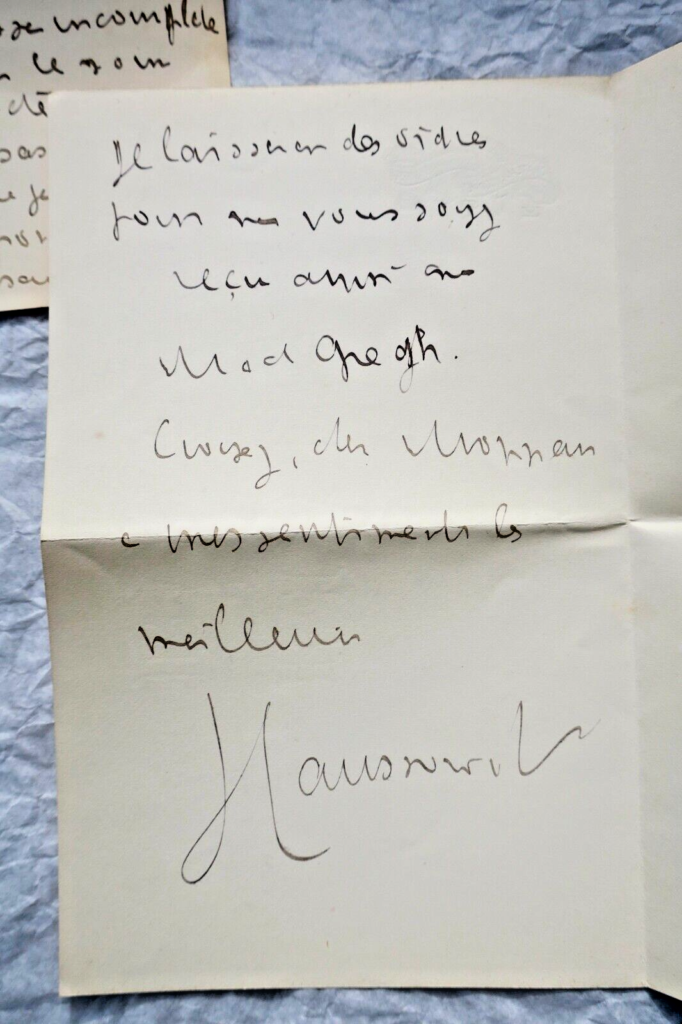 incomplete
le soin
dé
pas
je
Je laisserai des ordres
pour que vous soyez
reçu ainsi que
Mad Gregh.
Croyez, cher Monsieur
à mes sentiments les
meilleurs